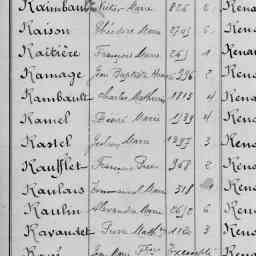 Raimbault Victor Marie 826 2 Rena
Raison Théodore Marie 2705 6 Rena
Raitière François Marie 261 1 Renau
Ramage Jean Baptiste Marie 996 2 Rena
Rambault Charles Mathurin 1813 4 Rena
Ramel Désiré Marie 1739 4 Rena
Rastel Marie 1397 3 Rena
Raufflet François Pierre 968 2 Rena
Raulais Emmanuel Marie 318 Rena
Raulin Alexandre Marie 2672 6 Rena
Ravaudet Pierre Math 1120 3 Rena
Jean Marie Exempté Rena